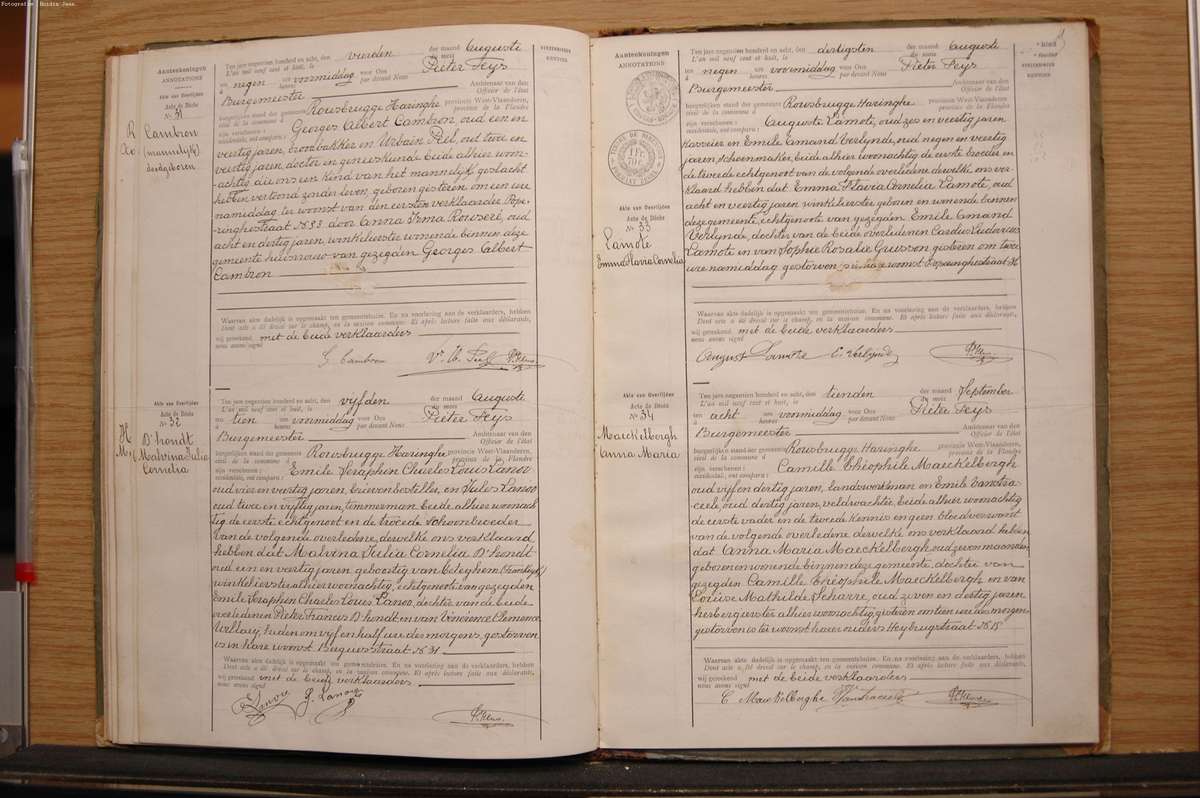 Fotografie: Huidig Jaak
Aanteekeningen
ANNOTATIONS
Akte van Overlijden
Acte de Décès
N: 31
Cambron
(mannelijk)
doodgeboren
Ten jare negentien honderd en acht, den vierden der maand Auguste
L'an mil neuf cent et huit, le du mois
te negen ure voormiddag voor Ons Pieter Feys
à heures par devant Nous
Burgemeester Ambtenaar van den
Officier de l'état
burgerlijken stand der gemeente Rousbrugge Haringhe provincie West-Vlaanderen,
civil de la commune d province de la Flandre
zijn verschenen: Georges Albert Cambron oud een en
occidentale, ont comparu:
veertig jaren, broodbakker en Urbain Peel, out twee en
veertig jaren, doctor in geneeskunde beide alhier woon-
achtig die ons een kind van het mannelijk geslacht
hebben vertoond zonder leven, geboren gisteren om een ure
namiddag ter woonst van den eersten verklaarder Pope-
ringhestraat N: 93 door Anna Irma Rouseré, oud
acht en dertig jaren, winkelierster wonende binnen deze
gemeente huisvrouw van gezegden Georges Albert
Cambron
Waarvan akte dadelijk is opgemaakt ten gemeentehuize. En na voorlezing aan de verklaarders, hebben
Dont acte a été dressé sur le champ, en la maison commune. Et après lecture faite aux déclarants,
wij geteekend met de beide verklaarders
nous avons signé
G Cambron
Akte van Overlijden
Acte de Décès
N: 32
D'hondt
Malvina Julia
Cornelia
Ten jare negentien honderd en acht, den vijfden der maand Auguste
L'an mil neuf cent et huit, le du mois
te tien ure voormiddag voor Ons Pieter Feys
à heures par devant Nous
Burgemeester Ambtenaar van den
Officier de l'état
burgerlijken stand der gemeente Rousbrugge Haringhe provincie West-Vlaanderen,
civil de la commune d province de la Flandre
zijn verschenen: Emile Seraphin Charles Louis Lanoo
occidentale, ont comparu:
oud vier en veertig jaren, brievenbesteller, en Jules Lanoo
oud twee en vijftig jaren, timmerman beide alhier woonach
tig de eerste echtgenoot en de tweede schoonbroeder
van de volgende overledene, dewelke ons verklaard
hebben dat Malvina Julia Cornelia D'hondt
oud een en veertig jaren geboortig van
winkelierster alhier woonachtig, echtgenote van gezegden
Emile Seraphin Charles Louis Lanoo, dochter van de beide
overledenen Pieter Francis D'hondt en van Vincence Clemence
heden om vijf en half ure des morgens, gestorven
is in hare woonst Berguesstraat N: 31
Waarvan akte dadelijk is opgemaakt ten gemeentehuize. En na voorlezing aan de verklaarders, hebben
Dont acte a été dressé sur le champ, en la maison commune. Et après lecture faite aux déclarants,
wij geteekend met de beide verklaarders
nous avons signé
E Lanoo J. Lanoo
Aanteekeningen
ANNOTATIONS
Akte van Overlijden
Acte de Décès
N: 33
Lamote
Emma Flavia Cornelia
Ten jare negentien honderd en acht, den dertigsten der maand Auguste
L'an mil neuf cent et huit, le du mois
te negen ure voormiddag voor Ons Pieter Feys
à heures par devant Nous
Burgemeester Ambtenaar van den
Officier de l'état
burgerlijken stand der gemeente Rousbrugge Haringhe provincie West-Vlaanderen,
civil de la commune d province de la Flandre
zijn verschenen: Auguste Lamote, oud zes en veertig jaren
occidentale, ont comparu:
kasseier en Emile Amand Verlynde, oud negen en veertig
jaren, schoenmaker, beide alhier woonachtig de eerste broeder en
de tweede echtgenoot van de volgende overledene dewelke ons ver-
klaard hebben dat Emma Flavia Cornelia Lamote, oud
acht en veertig jaren winkelierster geboren en wonende binnen
deze gemeente, echtgenoote van gezegden Emile Amand
Verlynde, dochter van de beide overledenen Carolus Ludovicus
Lamote en van Sophie Rosalie Grusson gisteren om twee
ure namiddag gestorven is in hare woonst Poperinghestraat
Waarvan akte dadelijk is opgemaakt ten gemeentehuize. En na voorlezing aan de verklaarders, hebben
Dont acte a été dressé sur le champ, en la maison commune. Et après lecture faite aux déclarants,
wij geteekend met de beide verklaarders
nous avons signé
August Lamote E. Verlynde
Akte van Overlijden
Acte de Décès
N: 34
Maeckelbergh
Anna Maria
Ten jare negentien honderd en acht, den tienden der maand September
L'an mil neuf cent et huit, le du mois
te acht ure voormiddag voor Ons Pieter Feys
à heures par devant Nous
Burgemeester Ambtenaar van den
Officier de l'état
burgerlijken stand der gemeente Rousbrugge Haringhe provincie West-Vlaanderen,
civil de la commune d province de la Flandre
zijn verschenen: Camille Théophile Maeckelbergh
occidentale, ont comparu:
oud vijf en dertig jaren, landswerkman en Emile Vanstra-
ceele, oud dertig jaren, veldwachter, beide alhier woonachtig
de eerste vader en de tweede kennis en geen bloedverwant
van de volgende overledene dewelke ons verklaard hebben
dat Anna Maria Maeckelbergh, oud zeven maanden
geboren en wonende binnen deze gemeente, dochter van
gezegden Camille Théophile Maeckelbergh en van
Louise Mathilde Scharre, oud zeven en dertig jaren
herbergierster alhier woonachtig gisteren om tien ure des morgens
gestorven is ter woonst harer ouders Heybrugstraat N: 15
Waarvan akte dadelijk is opgemaakt ten gemeentehuize. En na voorlezing aan de verklaarders, hebben
Dont acte a été dressé sur le champ, en la maison commune. Et après lecture faite aux déclarants,
wij geteekend met de beide verklaarders
nous avons signé
C Maeckelberghe